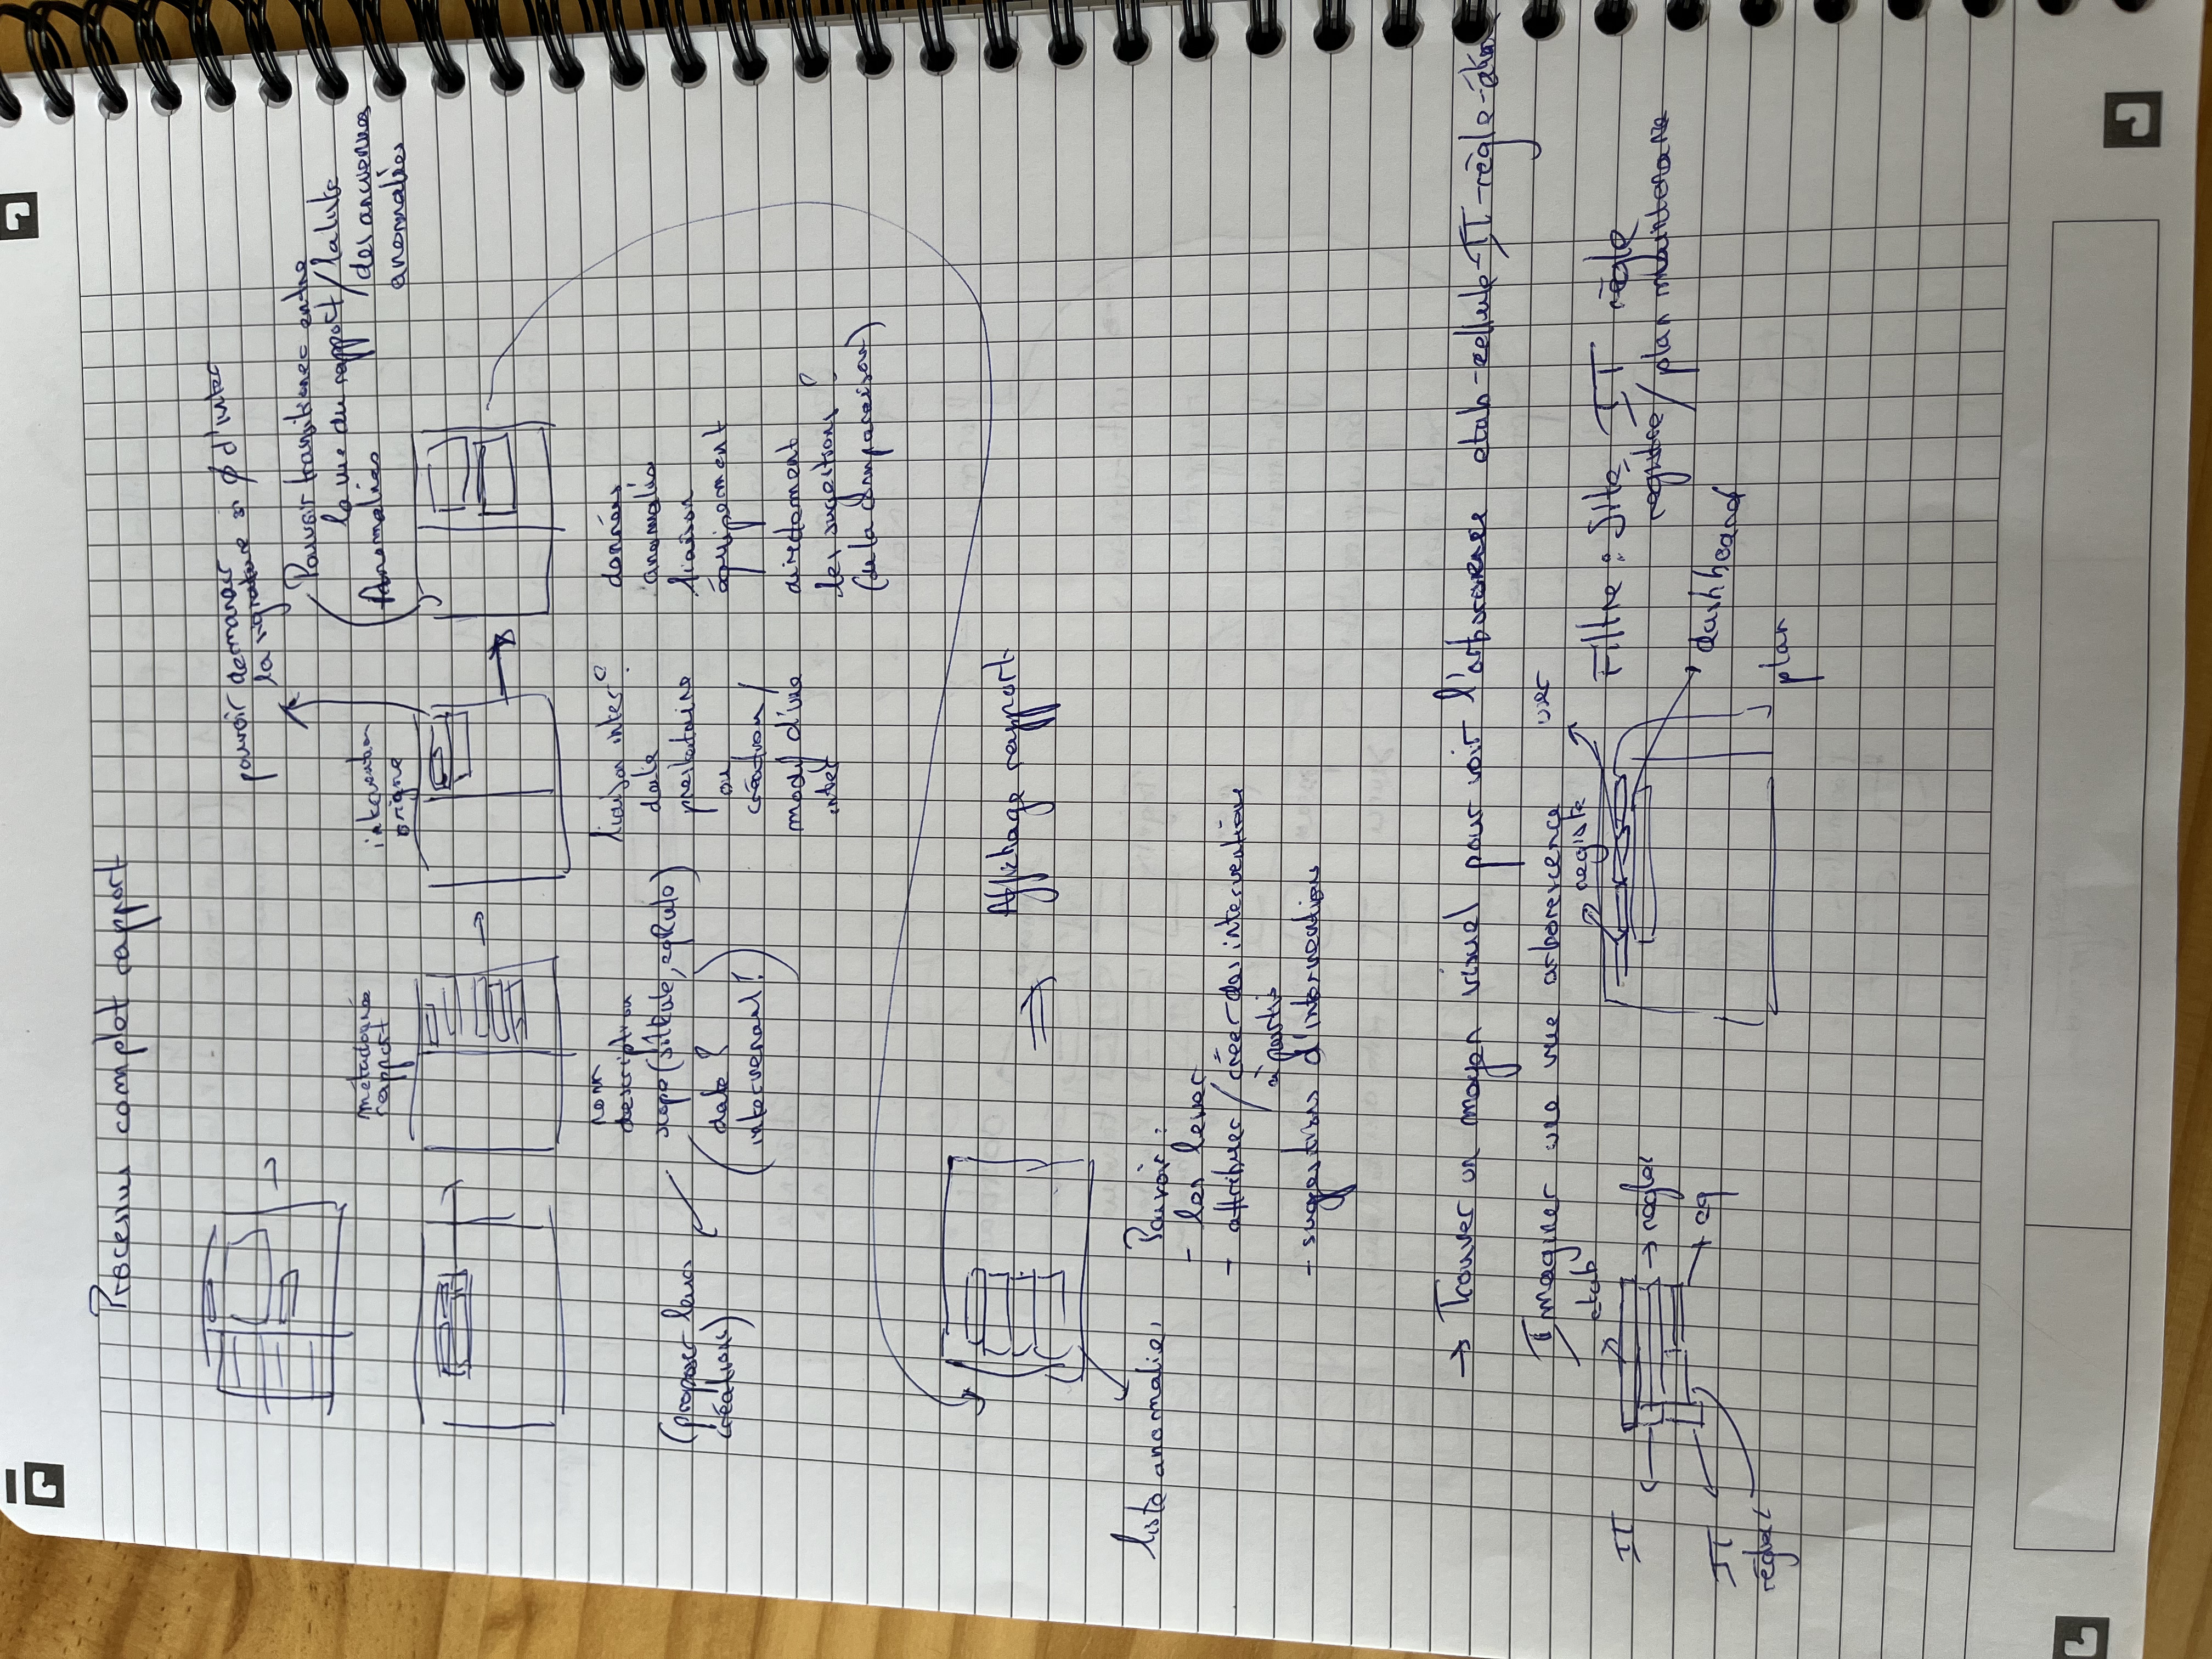 Processus complet rapport
pouvoir demander si ∅ d'inter
la signature
Pouvoir transitionner entre
la vue du rapport / la liste
des anciennes
anomalies
anomalies
métadonnées
rapport
intervention
origine
nom
description
scope (site, eq)
date ?
(intervenant ?)
(proposer lors
création)
liaison inter°
date
prestataire
ou
création /
modif d'une
inter
données
anomalie
liaison
équipement
directement
des suggestions
(de la comparaison)
Affichage rapport
liste anomalies
Pouvoir :
- les lever
- attribuer / créer des interventions
à partir
- suggestions d'interventions
→ Trouver un moyen visuel pour voir l'arborescence etab-cellule-IT-règle-
Imaginer une vue arborescence
etab
→ règles
→ eq
IT
IT
règles
registre
Filtre : Site, IT règle
registre / plan maintenance
dashboard
plan